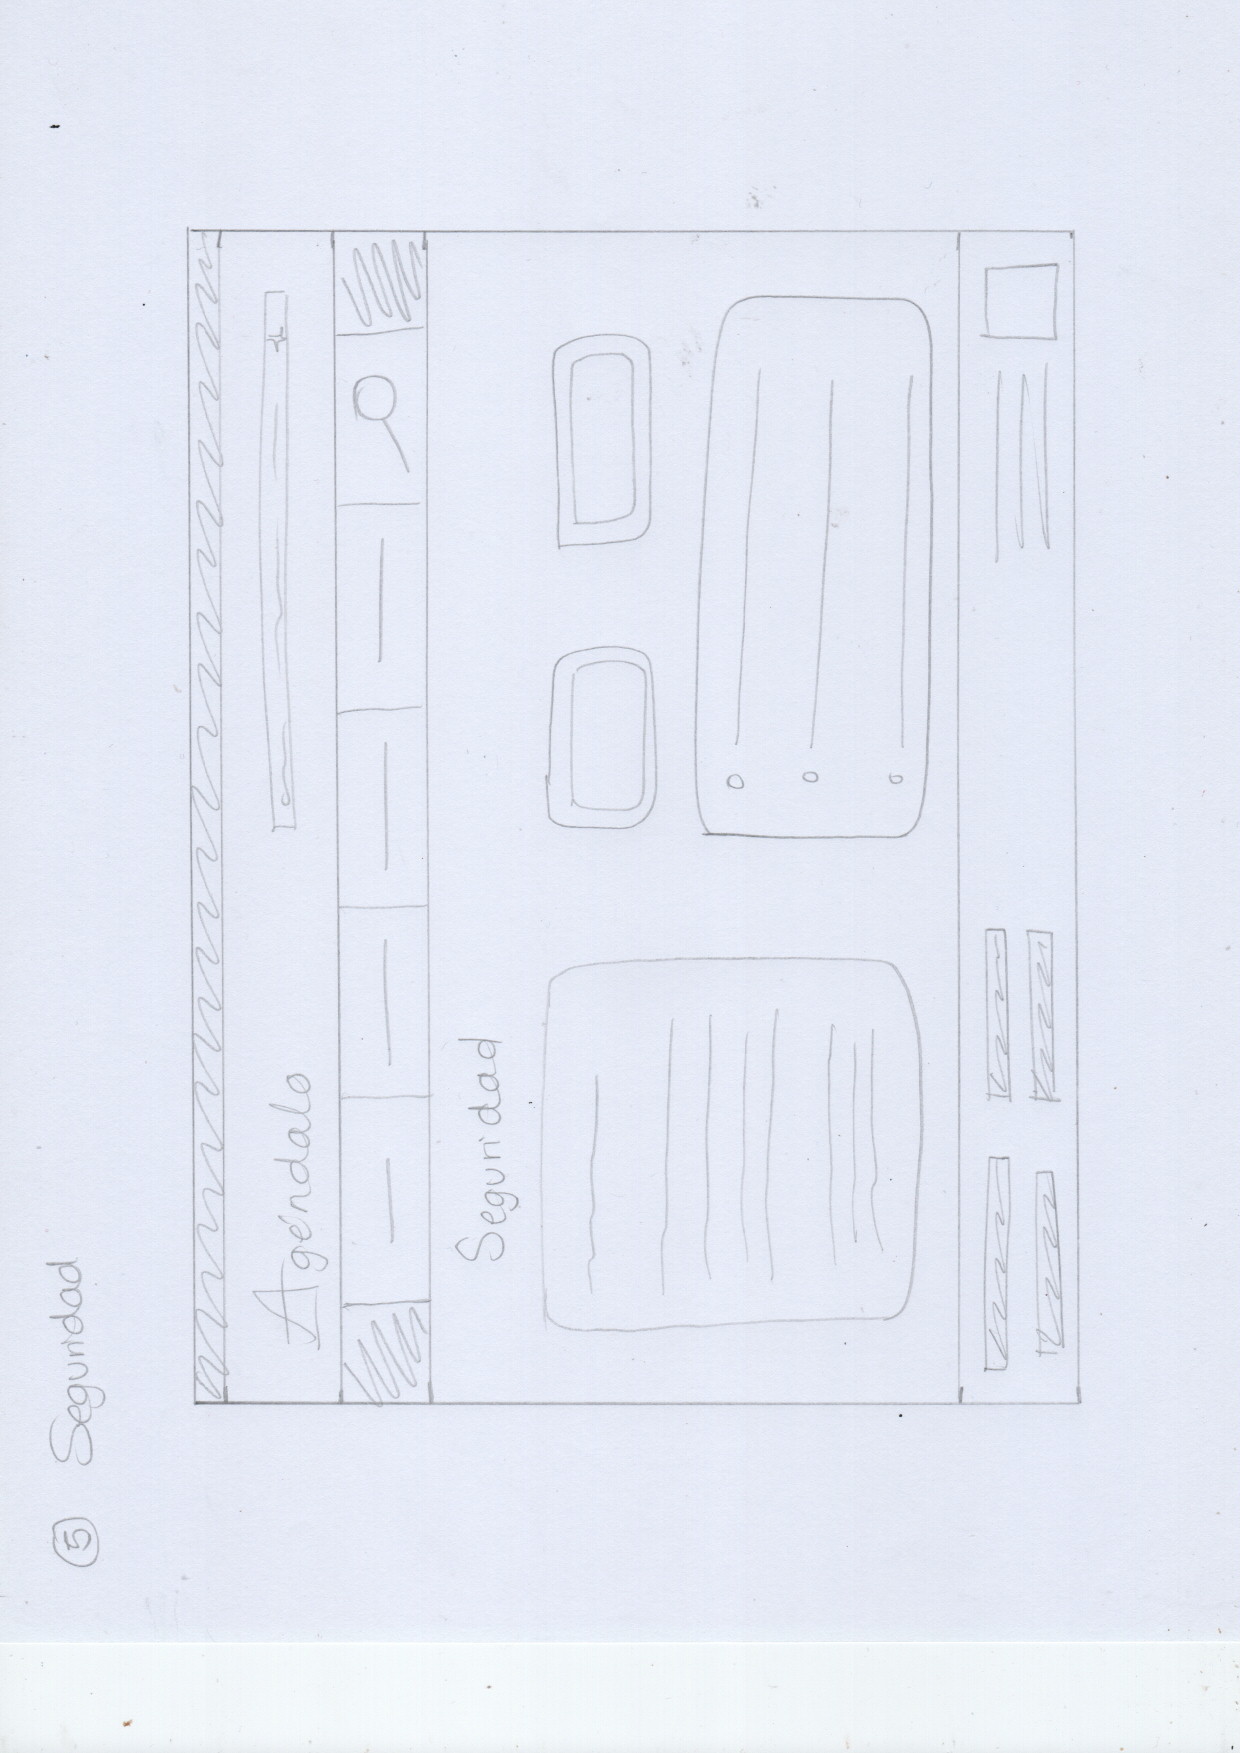 5 Seguridad
Agéndalo
Seguridad